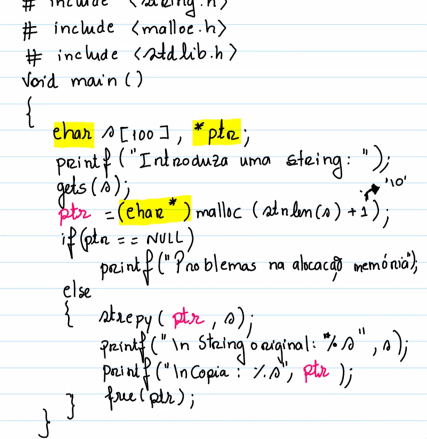 # include <string.h>
# include <malloc.h>
# include <stdlib.h>
void main ()
{
char s [100], *ptr;
printf ("Introduza uma string: ");
gets (s);
'\0'
ptr = (char *) malloc (strlen(s) + 1);
if (ptr == NULL)
printf ("Problemas na alocação memória");
else
{ strcpy ( ptr , s);
printf (" \n String original: %s" , s);
printf (" \n Copia : %s", ptr );
} free (ptr);
}